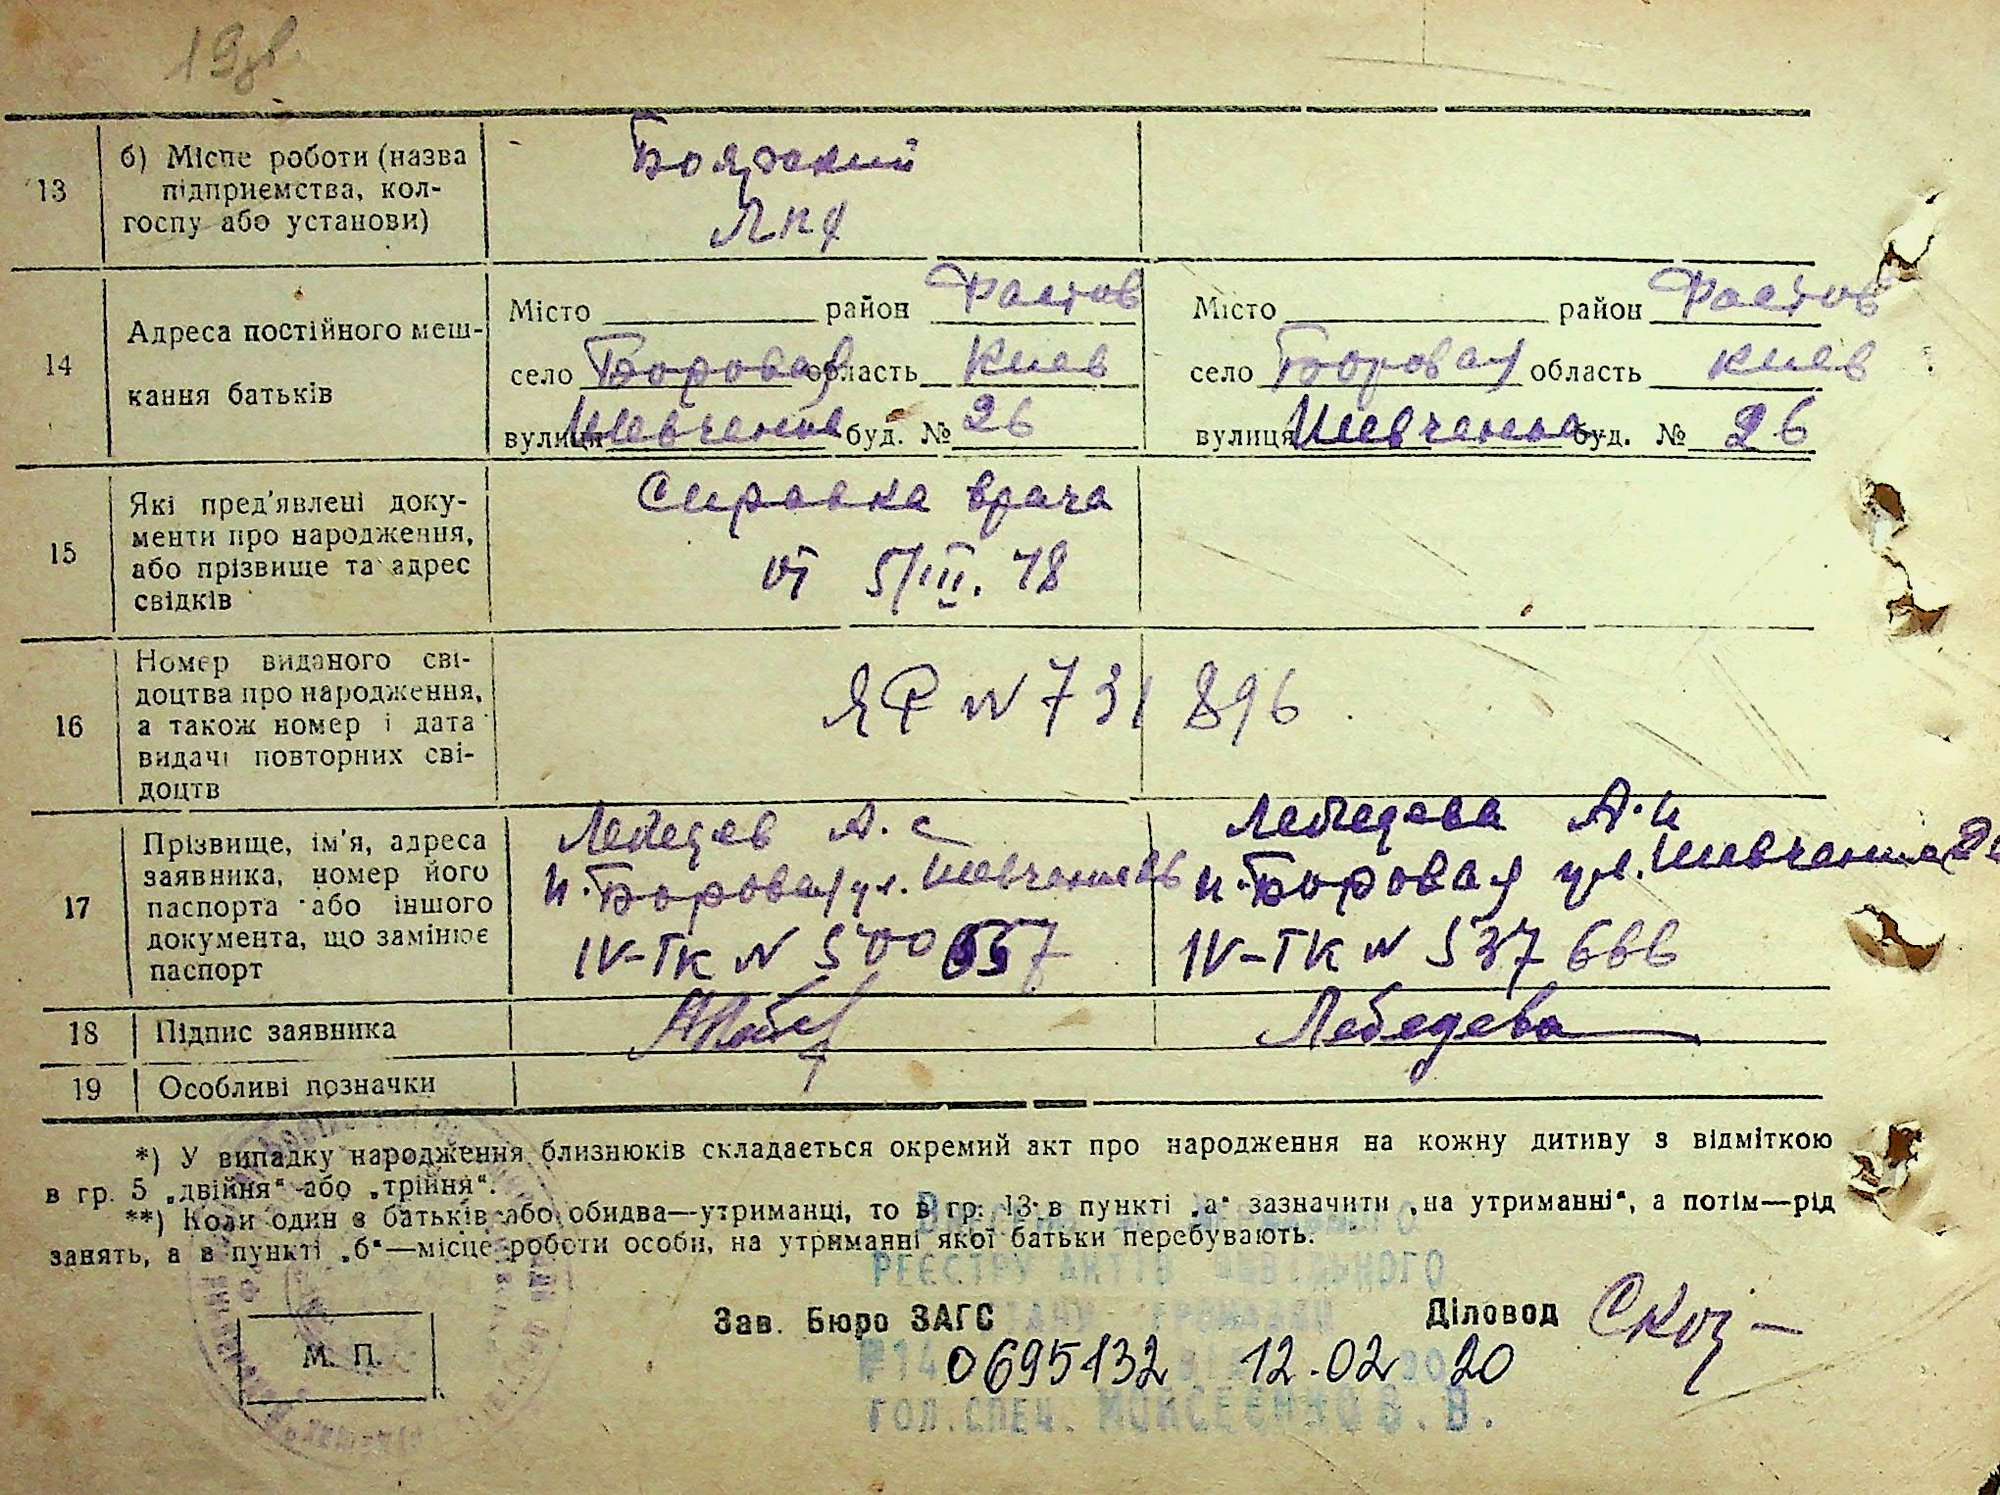 19
13
б) Місце роботи (назва
підприємства, кол-
госпу або установи)
Боярский
ЛПХ
14
Адреса постійного меш-
кання батьків
Місто район Фастов
село Боровая область Киев
вулиця Шевченка буд. № 26
Місто район Фастов
село Боровая область Киев
вулиця Шевченка буд. № 26
15
Які пред'явлені доку-
менти про народження,
або прізвище та адрес
свідків
Справка врача
от 5/III. 48
16
Номер виданого сві-
доцтва про народження,
а також номер і дата
видачі повторних сві-
доцтв
ЯР N 731 896
17
Прізвище, ім'я, адреса
заявника, номер його
паспорта або іншого
документа, що замінює
паспорт
Лебедев А. С
п. Боровая ул. Шевченка 26
IV-ТК N 500 557
Лебедева А. И
п. Боровая ул. Шевченка 26
IV-ТК N 537 666
18
Підпис заявника
Лебедева
19
Особливі позначки
*) У випадку народження близнюків складається окремий акт про народження на кожну дитину з відміткою
в гр. 5 „двійня“ або „трійня“.
**) Коли один з батьків або обидва—утриманці, то в гр. 13 в пункті „а“ зазначити „на утриманні“, а потім—рід
занять, а в пункті „б“—місце роботи особи, на утриманні якої батьки перебувають.
РЕЄСТРУ АКТІВ ЦИВІЛЬНОГО
СТАНУ ГРОМАДЯН
Зав. Бюро ЗАГС
Діловод
М. П.
№14 0695132 від 12.02 2020
ГОЛ.СПЕЦ. МОИСЕЄНКО В. В.